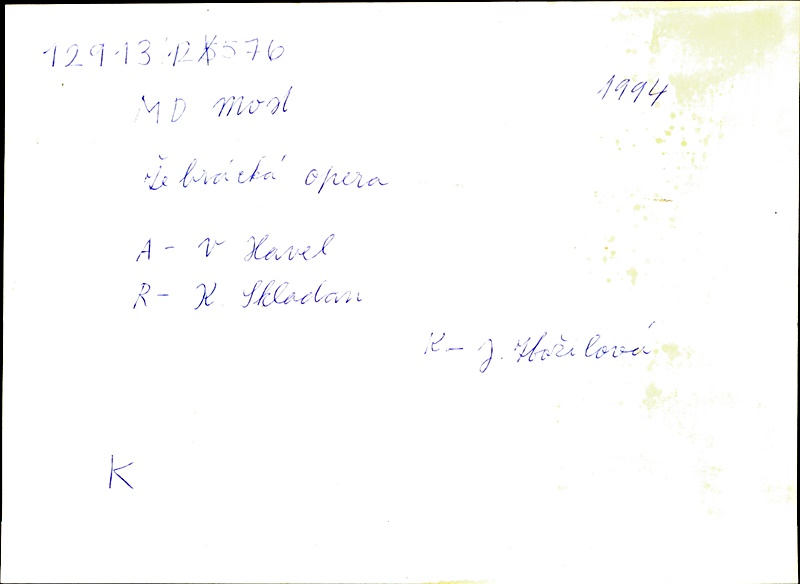 12913
1994
MD Most
Žebrácká opera
A - V Havel
R - K. Skladan
K - J. Zbořilová
K